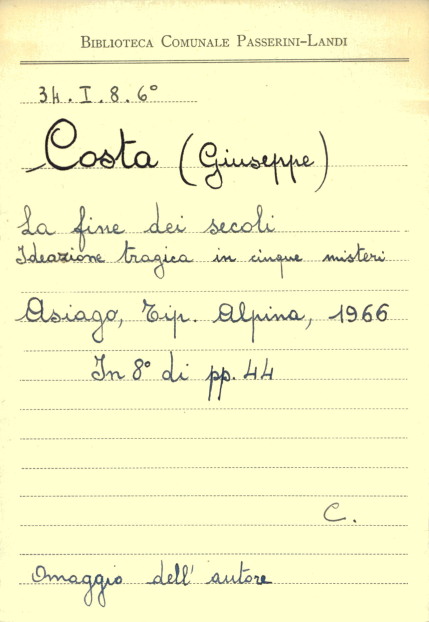 Biblioteca Comunale Passerini-Landi
34. I. 8. 6°
Costa (Giuseppe)
La fine dei secoli
Ideazione tragica in cinque misteri
Asiago, Tip. Alpina, 1966
In 8° di pp. 44
C.
Omaggio dell' autore